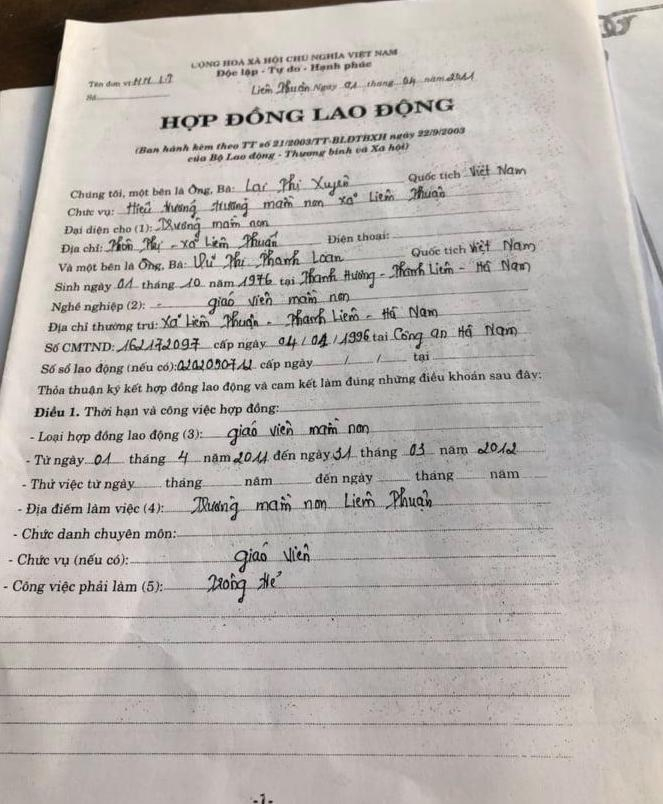 CỘNG HOÀ XÃ HỘI CHỦ NGHĨA VIỆT NAM
Độc lập - Tự do - Hạnh phúc
Tên đơn vị:
Số
Liêm Thuận Ngày 01 tháng 04 năm 2011
HỢP ĐỒNG LAO ĐỘNG
(Ban hành kèm theo TT số 21/2003/TT-BLĐTBXH ngày 22/9/2003
của Bộ Lao động - Thương binh và Xã hội)
Chúng tôi, một bên là Ông, Bà: Lại Thị Xuyên Quốc tịch Việt Nam
Chức vụ: Hiệu trưởng trường mầm non xã Liêm Thuận
Đại diện cho (1): Trường mầm non
Địa chỉ: Thôn Thị - xã Liêm Thuận Điện thoại:
Và một bên là Ông, Bà: Vũ Thị Thanh Loan Quốc tịch Việt Nam
Sinh ngày 01 tháng 10 năm 1976 tại Thanh Hương - Thanh Liêm - Hà Nam
Nghề nghiệp (2): - giáo viên mầm non
Địa chỉ thường trú: Xã Liêm Thuận - Thanh Liêm - Hà Nam
Số CMTND: 162172097 cấp ngày 04/01/1996 tại Công an Hà Nam
Số sổ lao động (nếu có): cấp ngày / / tại
Thỏa thuận ký kết hợp đồng lao động và cam kết làm đúng những điều khoản sau đây:
Điều 1. Thời hạn và công việc hợp đồng:
- Loại hợp đồng lao động (3): giáo viên mầm non
- Từ ngày 01 tháng 4 năm 2011 đến ngày 31 tháng 03 năm 2012
- Thử việc từ ngày tháng năm đến ngày tháng năm
- Địa điểm làm việc (4): Trường mầm non Liêm Thuận
- Chức danh chuyên môn:
- Chức vụ (nếu có): giáo viên
- Công việc phải làm (5): Trông trẻ
-1-